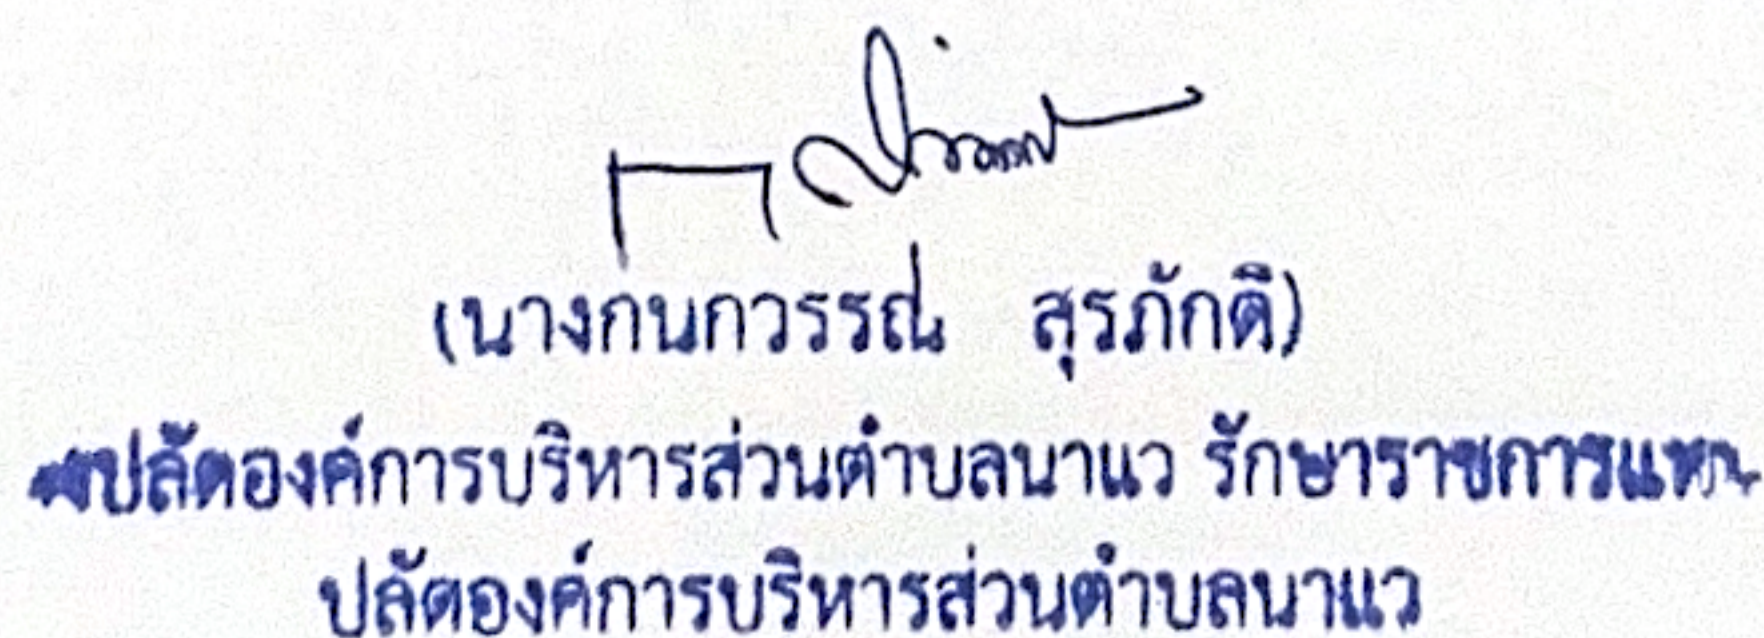 (นางกนกวรรณ สุรภักดี)
ปลัดองค์การบริหารส่วนตำบลนาแว รักษาราชการแทน
ปลัดองค์การบริหารส่วนตำบลนาแว